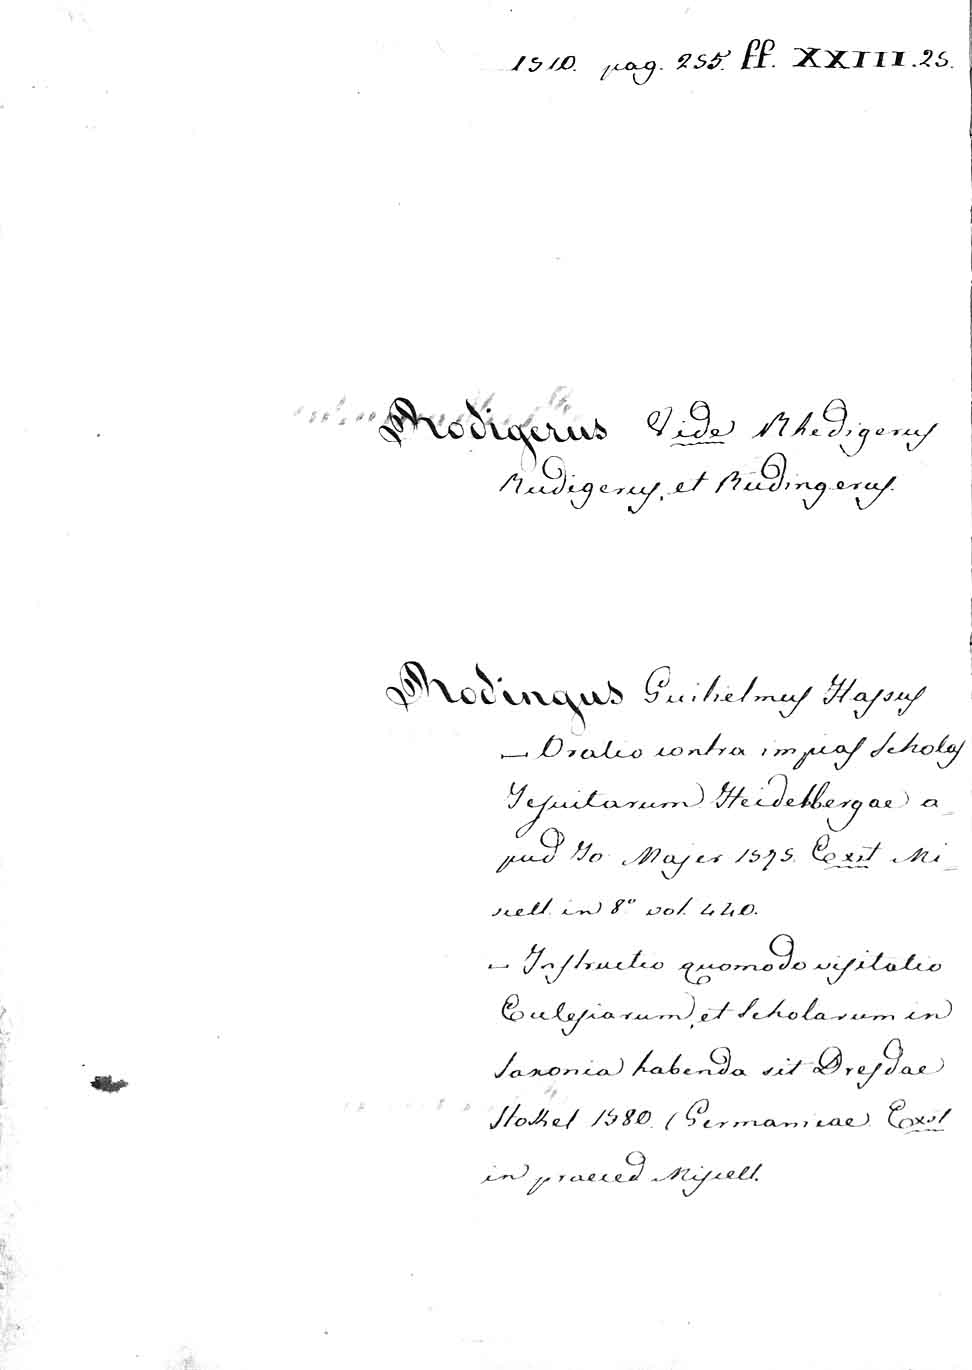 1510. pag. 255. ff. XXIII.25.
Rodigerus Vide Rhedigerus
Rudigerus, et Rudingerus.
Rodingus Guilielmus Hassus
— Oratio contra impias Scholas
Jesuitarum Heidelbergae a_
pud Jo. Majer 1575. Exit Mi_
scell. in 8° vol. 440.
— Instructio quomodo visitatio
Ecclesiarum, et Scholarum in
Saxonia habenda sit Dresdae
Stokel 1580. (Germanicae. Exit
in praeced Miscell.